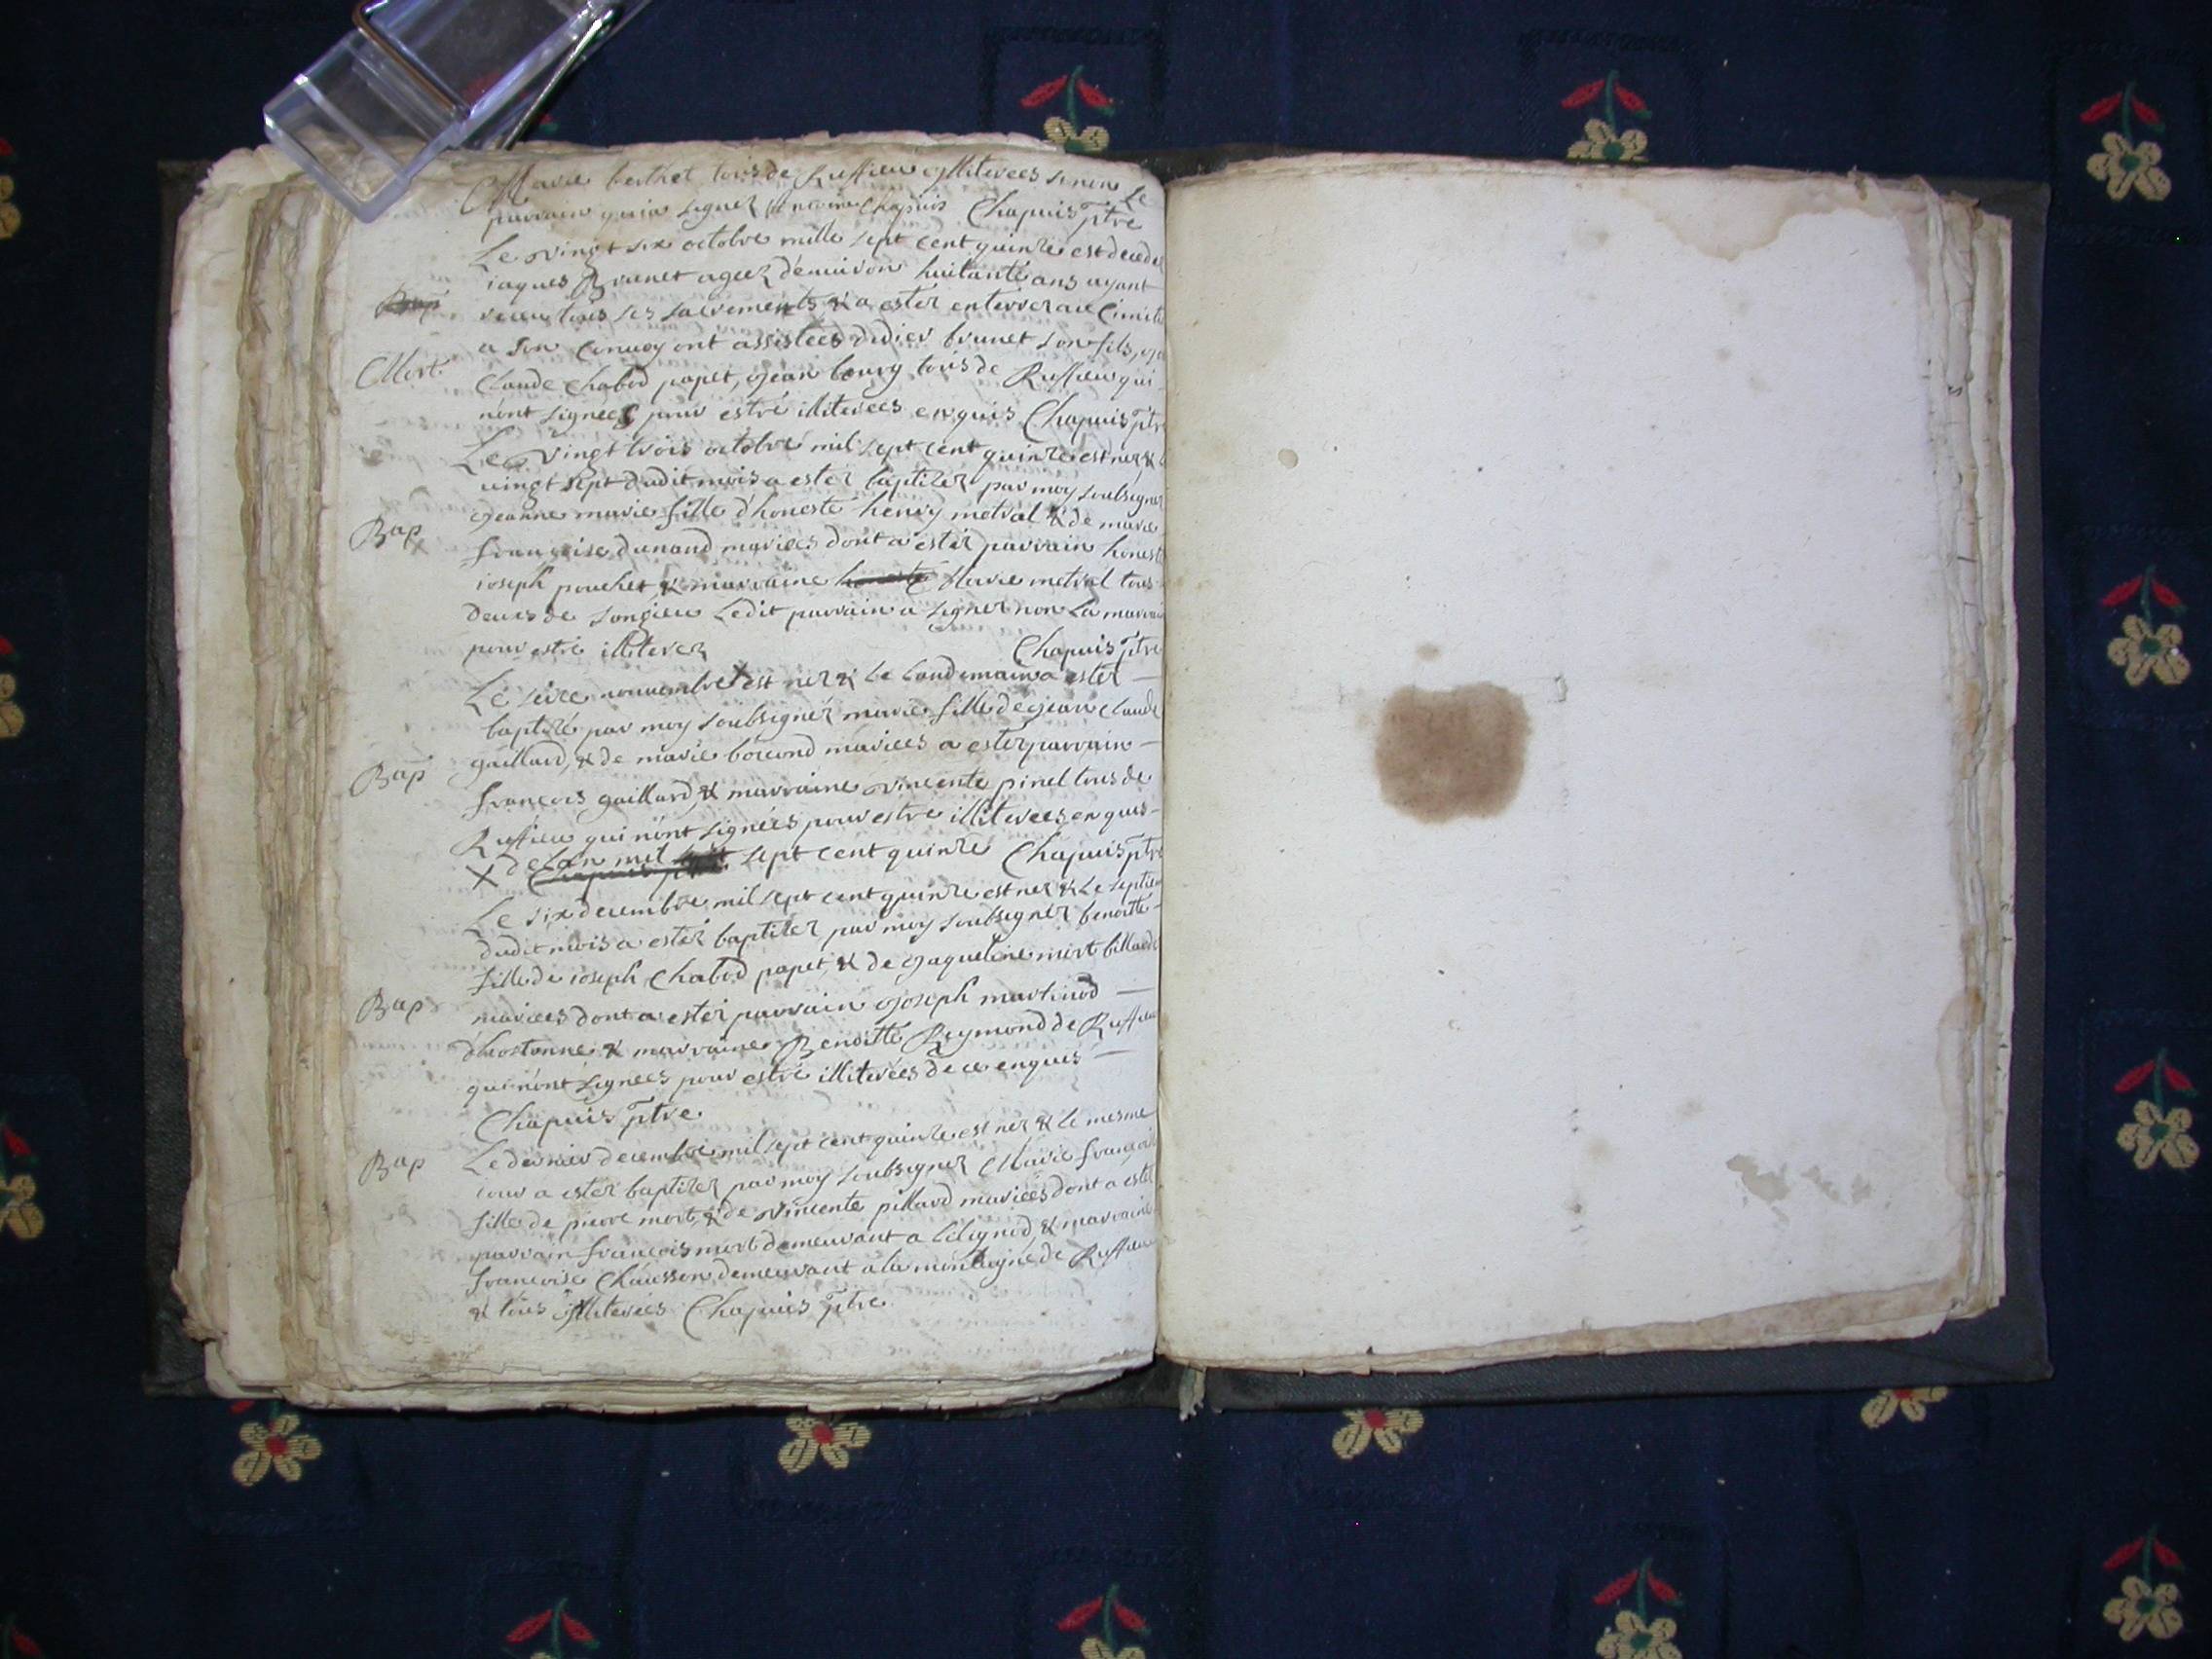 Marie berthet tous de Ruffieu illiterees sinon Le
parrain qui a signer Chapuis Chapuis ptre
Le vingt six octobre mille sept cent quinze est decede
iaques Brunet agez d'enuiron huitante ans ayant
receu tous ses sacrements & a ester enterrer au Cimiti
a son Conuoy ont assistees didier brunet son fils,
Mort
Claude Chabod papet, jean bourg tous de Ruffieu qui
n'ont signees pour estre illiterees enquis Chapuis ptre
Le vingt trois octobre mil sept cent quinze est nez &
uingt sept dudit mois a ester baptizez par moy soubsignez
jeanne marie fille d'honeste henry metral & de marie
Bap
françoise dunand mariees dont a ester parrain honeste
ioseph pouchet & marraine honeste Marie metral tous
deux de songieu Ledit parrain a signer non La marrai
pour estre illiterez Chapuis ptre
Le seize nouuembre X est nez & Le Landemain a ester
baptizé par moy soubsignér marie fille de jean Claude
Bap
gaillard, & de marie borcond mariees a ester parrain
françois gaillard & marraine vincente pinel tous de
Ruffieu qui n'ont signées pour estre illiterees enques
X de Lan mil sept cent quinze Chapuis ptre
Le six decembre mil sept cent quinze est nez & Le septie
dudit mois a ester baptizer par moy soubsignér benoitte
fille de ioseph Chabod papet & de jaqueline mort billard
Bap
mariees dont a ester parrain joseph martinod
d'hostonne & marraine Benoitte Reymond de Ruffieu
qui n'ont signees pour estre illiterées de ce enquis
Chapuis ptre
Bap
Le dernier decembre mil sept cent quinze est nez & Le mesme
iour a ester baptizer par moy soubsignez Marie françoise
fille de pierre mort, & de vincente pillard mariées dont a ester
parrain françois mort demeurant a Lelignod & marraine
françoise Chausson demeurant a la montagne de Ruffieu
& tous illiterées Chapuis ptre